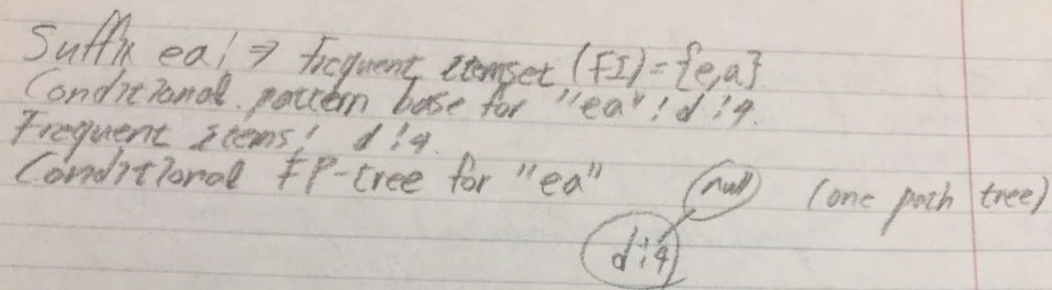 Suffix ea: ⇒ frequent itemset (FI) = {e,a}
Conditional pattern base for "ea": d:4.
Frequent items: d:4.
Conditional FP-tree for "ea"
null (one path tree)
d:4